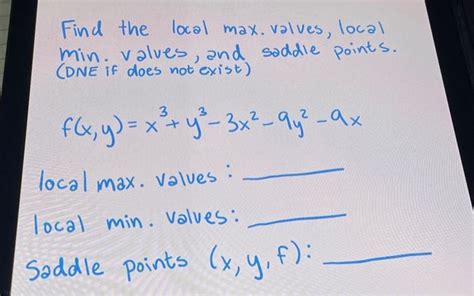 Find the local max. values, local
min. values, and saddle points.
(DNE if does not exist)
f(x,y) = x³ + y³ - 3x² - 9y² - 9x
local max. values : ______
local min. values: ______
Saddle points (x, y, f): ______